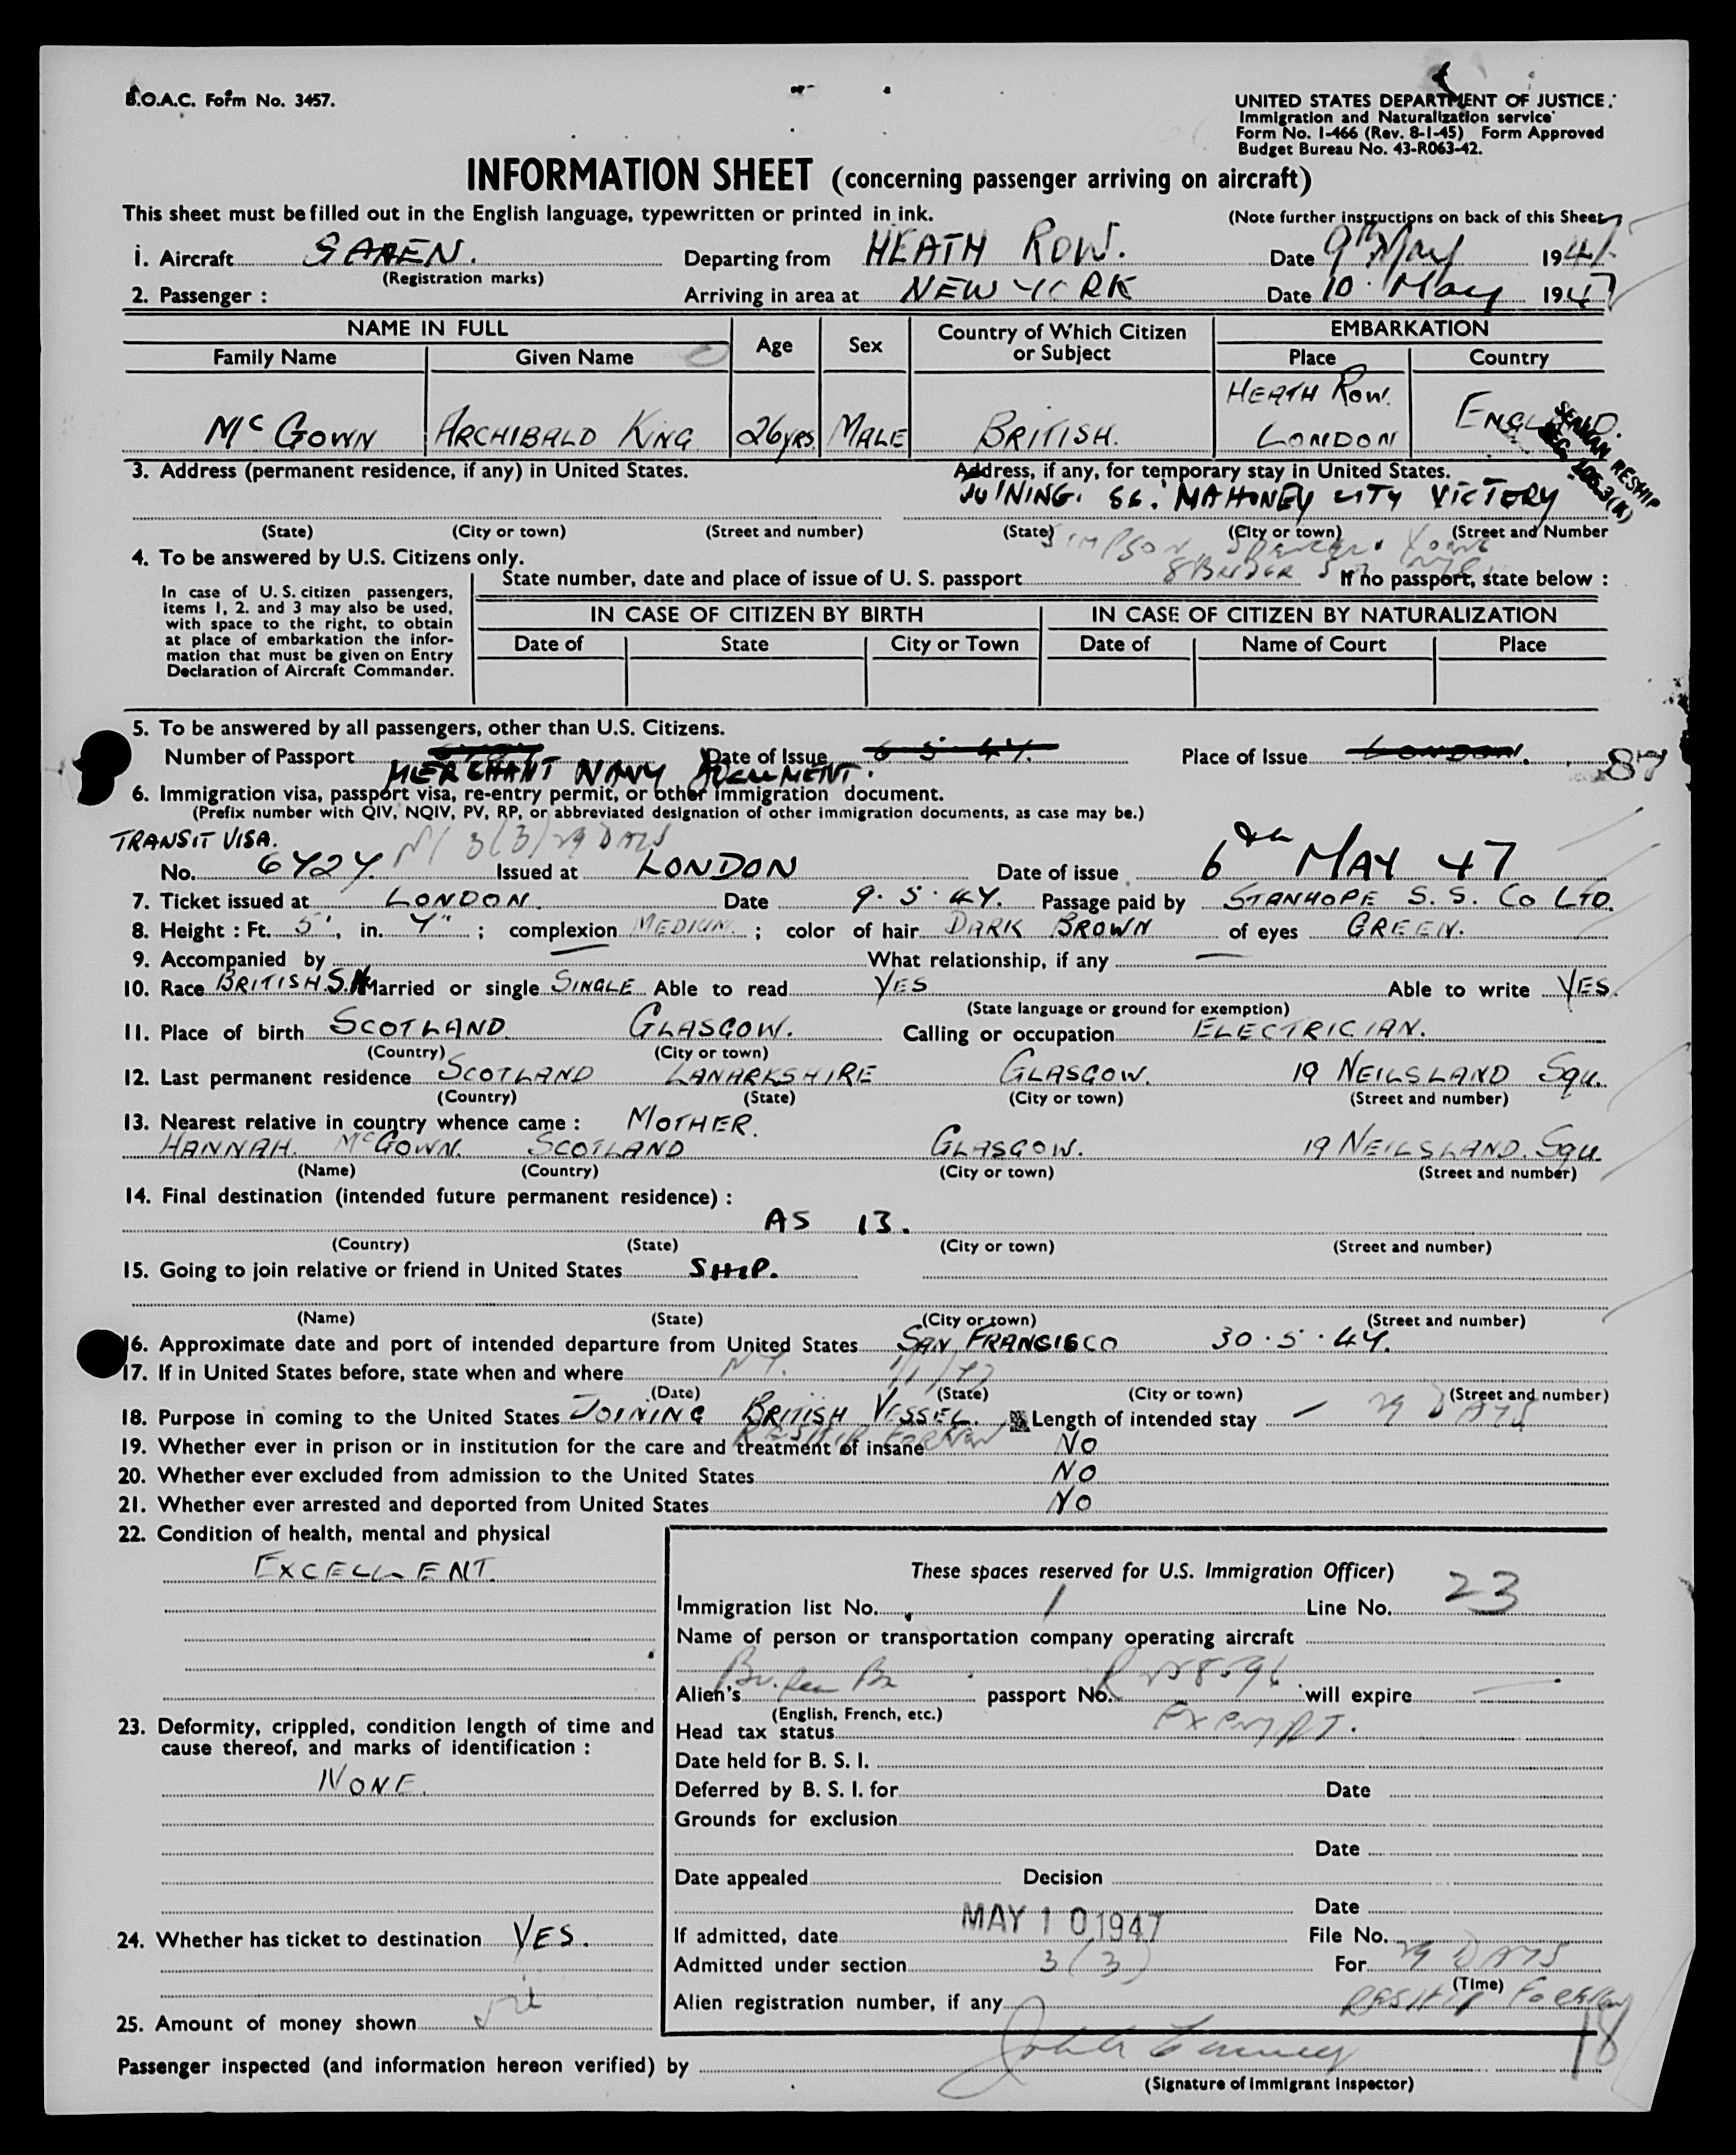 B.O.A.C. Form No. 3457.
UNITED STATES DEPARTMENT OF JUSTICE.
Immigration and Naturalization service
Form No. I-466 (Rev. 8-1-45) Form Approved
Budget Bureau No. 43-R063-42.
INFORMATION SHEET (concerning passenger arriving on aircraft)
This sheet must be filled out in the English language, typewritten or printed in ink.
(Note further instructions on back of this Sheet
1. Aircraft GAHEN. Departing from HEATH ROW. Date 9th May 1947
(Registration marks)
2. Passenger : Arriving in area at NEW YORK Date 10 May 1947
NAME IN FULL Age Sex Country of Which Citizen or Subject EMBARKATION
Family Name Given Name Place Country
HEATH ROW.
McGOWN ARCHIBALD KING 26 YRS. MALE BRITISH. LONDON ENGLAND.
SEAMAN RESHIP
3. Address (permanent residence, if any) in United States. Address, if any, for temporary stay in United States.
JOINING. SS. MAHONEY CITY VICTORY
(State) (City or town) (Street and number) (State) (City or town) (Street and Number
SIMPSON Spence & Young
4. To be answered by U.S. Citizens only.
State number, date and place of issue of U. S. passport If no passport, state below :
In case of U. S. citizen passengers,
items 1, 2. and 3 may also be used,
with space to the right, to obtain
at place of embarkation the infor-
mation that must be given on Entry
Declaration of Aircraft Commander.
IN CASE OF CITIZEN BY BIRTH IN CASE OF CITIZEN BY NATURALIZATION
Date of State City or Town Date of Name of Court Place
5. To be answered by all passengers, other than U.S. Citizens.
Number of Passport Date of Issue 6 · 5 · 47. Place of Issue LONDON. 87
MERCHANT NAVY DOCUMENT.
6. Immigration visa, passport visa, re-entry permit, or other immigration document.
(Prefix number with QIV, NQIV, PV, RP, or abbreviated designation of other immigration documents, as case may be.)
TRANSIT VISA. 3(3) 29 DAYS
No. 6727. Issued at LONDON Date of issue 6th MAY 47
7. Ticket issued at LONDON. Date 9. 5. 47. Passage paid by STANHOPE S. S. Co LTD.
8. Height : Ft. 5', in. 7" ; complexion MEDIUM ; color of hair DARK BROWN of eyes GREEN.
9. Accompanied by — What relationship, if any —
10. Race BRITISH. Married or single SINGLE Able to read YES Able to write YES.
(State language or ground for exemption)
11. Place of birth SCOTLAND. GLASGOW. Calling or occupation ELECTRICIAN.
(Country) (City or town)
12. Last permanent residence SCOTLAND LANARKSHIRE GLASGOW. 19 NEILSLAND SQU.
(Country) (State) (City or town) (Street and number)
13. Nearest relative in country whence came : MOTHER.
HANNAH. McGOWN. SCOTLAND GLASGOW. 19 NEILSLAND. SQU.
(Name) (Country) (City or town) (Street and number)
14. Final destination (intended future permanent residence) :
AS 13.
(Country) (State) (City or town) (Street and number)
15. Going to join relative or friend in United States SHIP.
(Name) (State) (City or town) (Street and number)
16. Approximate date and port of intended departure from United States SAN FRANCISCO 30 · 5 · 47.
17. If in United States before, state when and where N.Y. 1/1/47
(Date) (State) (City or town) (Street and number)
18. Purpose in coming to the United States JOINING BRITISH VESSEL. Length of intended stay — 29 DAYS
RESHIP FOREIGN
19. Whether ever in prison or in institution for the care and treatment of insane NO
20. Whether ever excluded from admission to the United States NO
21. Whether ever arrested and deported from United States NO
22. Condition of health, mental and physical
EXCELLENT.
These spaces reserved for U.S. Immigration Officer)
Immigration list No. 1 Line No. 23
Name of person or transportation company operating aircraft
Alien's passport No. will expire —
(English, French, etc.)
23. Deformity, crippled, condition length of time and
cause thereof, and marks of identification :
NONE.
Head tax status EXEMPT.
Date held for B. S. I.
Deferred by B. S. I. for Date
Grounds for exclusion
Date
Date appealed Decision
Date
24. Whether has ticket to destination YES.
If admitted, date MAY 10 1947 File No.
Admitted under section 3(3) For 29 DAYS
(Time)
Alien registration number, if any RESHIP FOREIGN
25. Amount of money shown
18
Passenger inspected (and information hereon verified) by
(Signature of immigrant inspector)